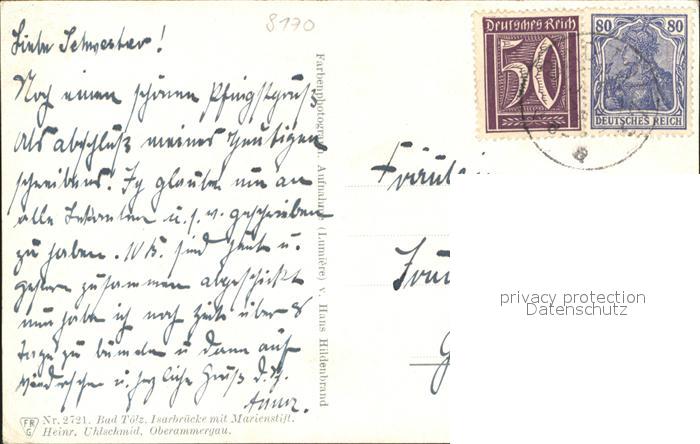 8170
Liebe Schwester!
Noch einen schönen Pfingstgruß
Als abschluß meines heutigen
schreibens. Ich glaube nun an
alle bekannten u.s.w. geschrieben
zu haben. sind heute u.
gestern zusammen abgeschickt
nun habe ich noch Zeit über 8
Tage zu bummeln u dann auf
Wiedersehen u. herzliche Gruß d. Br.
Farbenphotograph. Aufnahme (Lumière) v. Hans Hildenbrand
Deutsches Reich
50
80 80
DEUTSCHES REICH
Fräul
privacy protection
Datenschutz
FR
G
Nr. 2721. Bad Tölz. Isarbrücke mit Marienstift.
Heinr. Uhlschmid, Oberammergau.